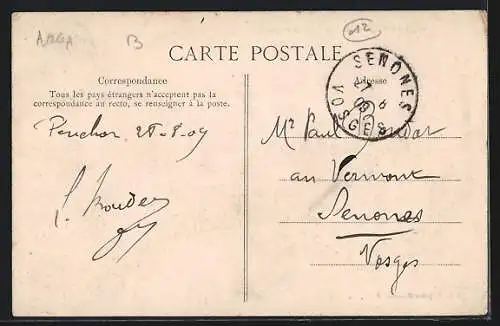 B
12
CARTE POSTALE
Correspondance
Tous les pays étrangers n'acceptent pas la
correspondance au recto, se renseigner à la poste.
Adresse
SENONES
VOSGES
27
8
09
28-8-09
Mr Paul
au Vermont
Senones
Vosges